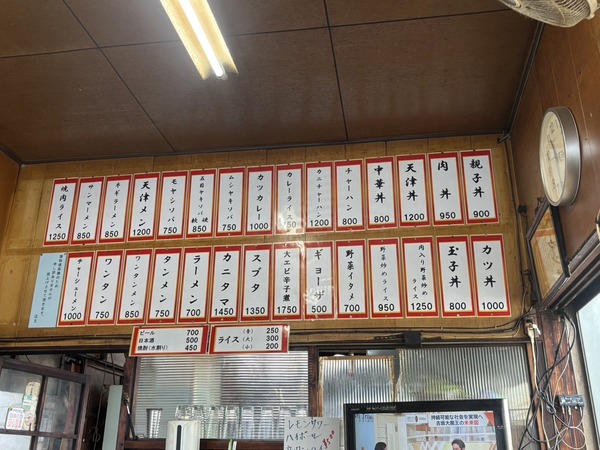 親子丼
900
肉丼
950
天津丼
1200
中華丼
800
チャーハン
800
カニチャーハン
1200
カレーライス
750
カツカレー
1000
ムシヤキソバ
750
五目ヤキソバ
軟・硬
850
モヤシソバ
750
天津メン
1200
ネギラーメン
850
サンマーメン
850
焼肉ライス
1250
カツ丼
1000
玉子丼
800
肉入り野菜炒め
ライス
1250
野菜炒めライス
950
野菜イタメ
700
ギョーザ
500
大エビ辛子煮
1750
スブタ
1350
カニタマ
1450
ラーメン
700
タンメン
750
ワンタンメン
850
ワンタン
750
チャーシューメン
1000
ビール 700
日本酒 500
焼酎(水割り) 450
ライス (大) 300
(小) 200
250
レモンサワー
ハイボール
持続可能な社会を実現へ
の未来図